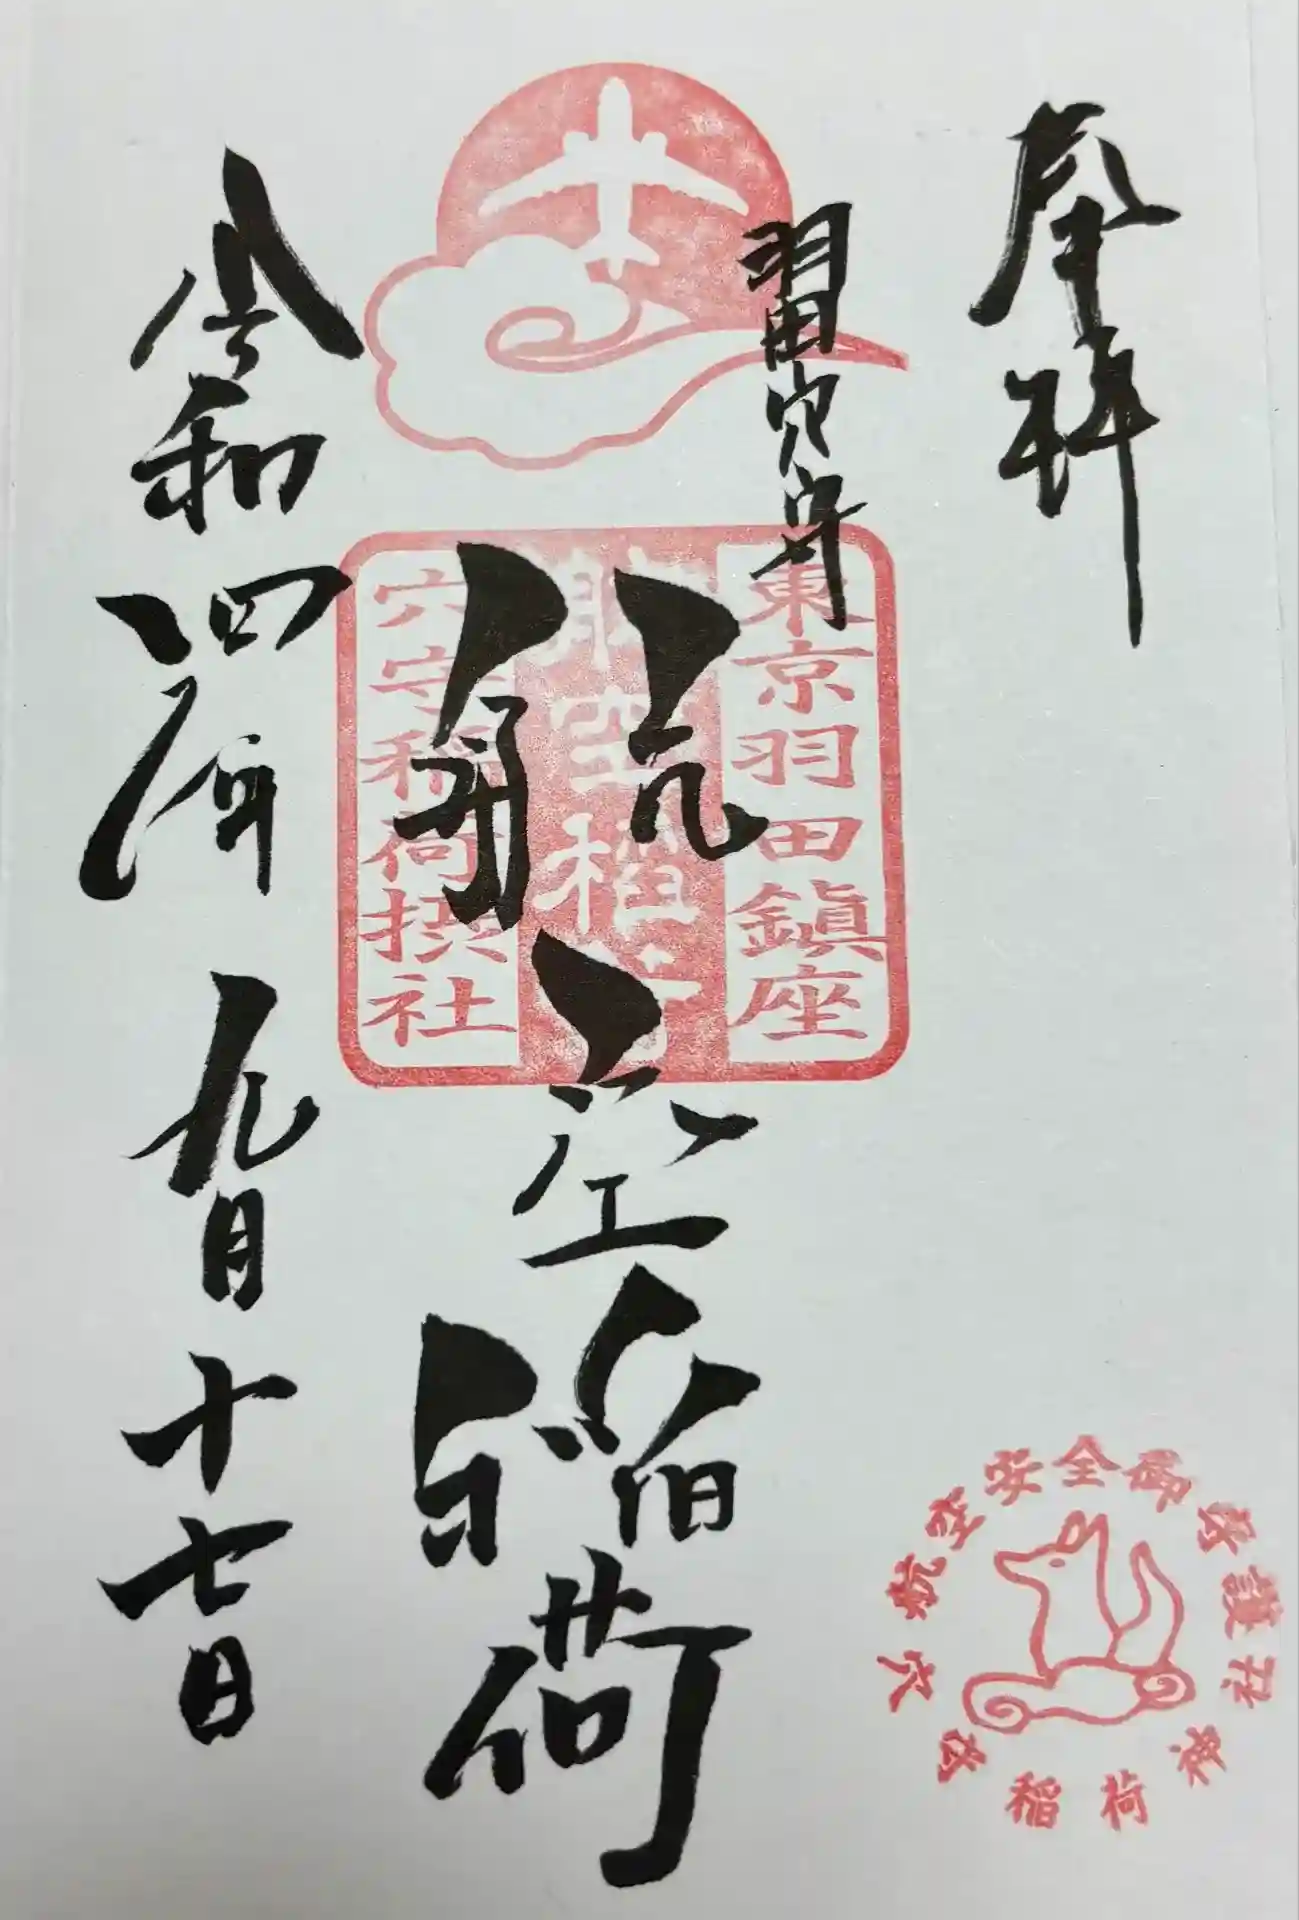 奉拝
羽田穴守
航空稲荷
令和四年九月十七日
東京羽田鎮座
航空稲荷
穴守稲荷摂社
航空安全御守護
穴守稲荷神社